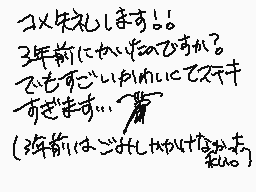 コメ失礼します!!
3年前にかいたのですか?
でもすごいかわいくてステキ
すぎます…
(3年前はごみしかかけなかった